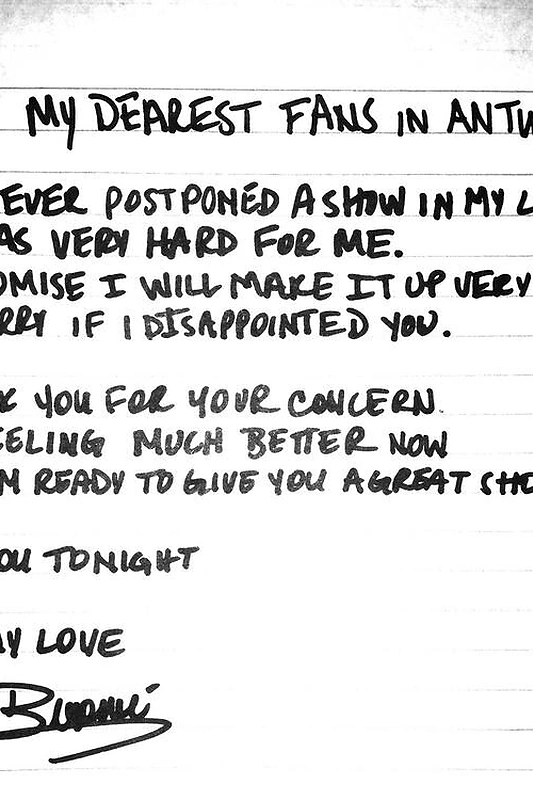 MY DEAREST FANS IN ANTW
EVER POSTPONED A SHOW IN MY L
AS VERY HARD FOR ME.
OMISE I WILL MAKE IT UP VERY
RRY IF I DISAPPOINTED YOU.
K YOU FOR YOUR CONCERN.
EELING MUCH BETTER NOW
M READY TO GIVE YOU A GREAT SHO
OU TONIGHT
MY LOVE
Beyoncé